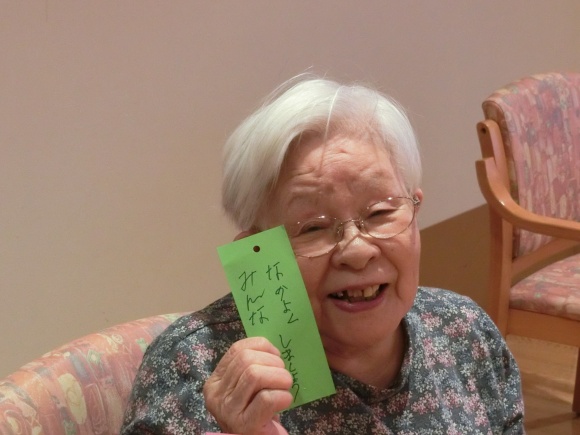 みんな
なかよく しましょう